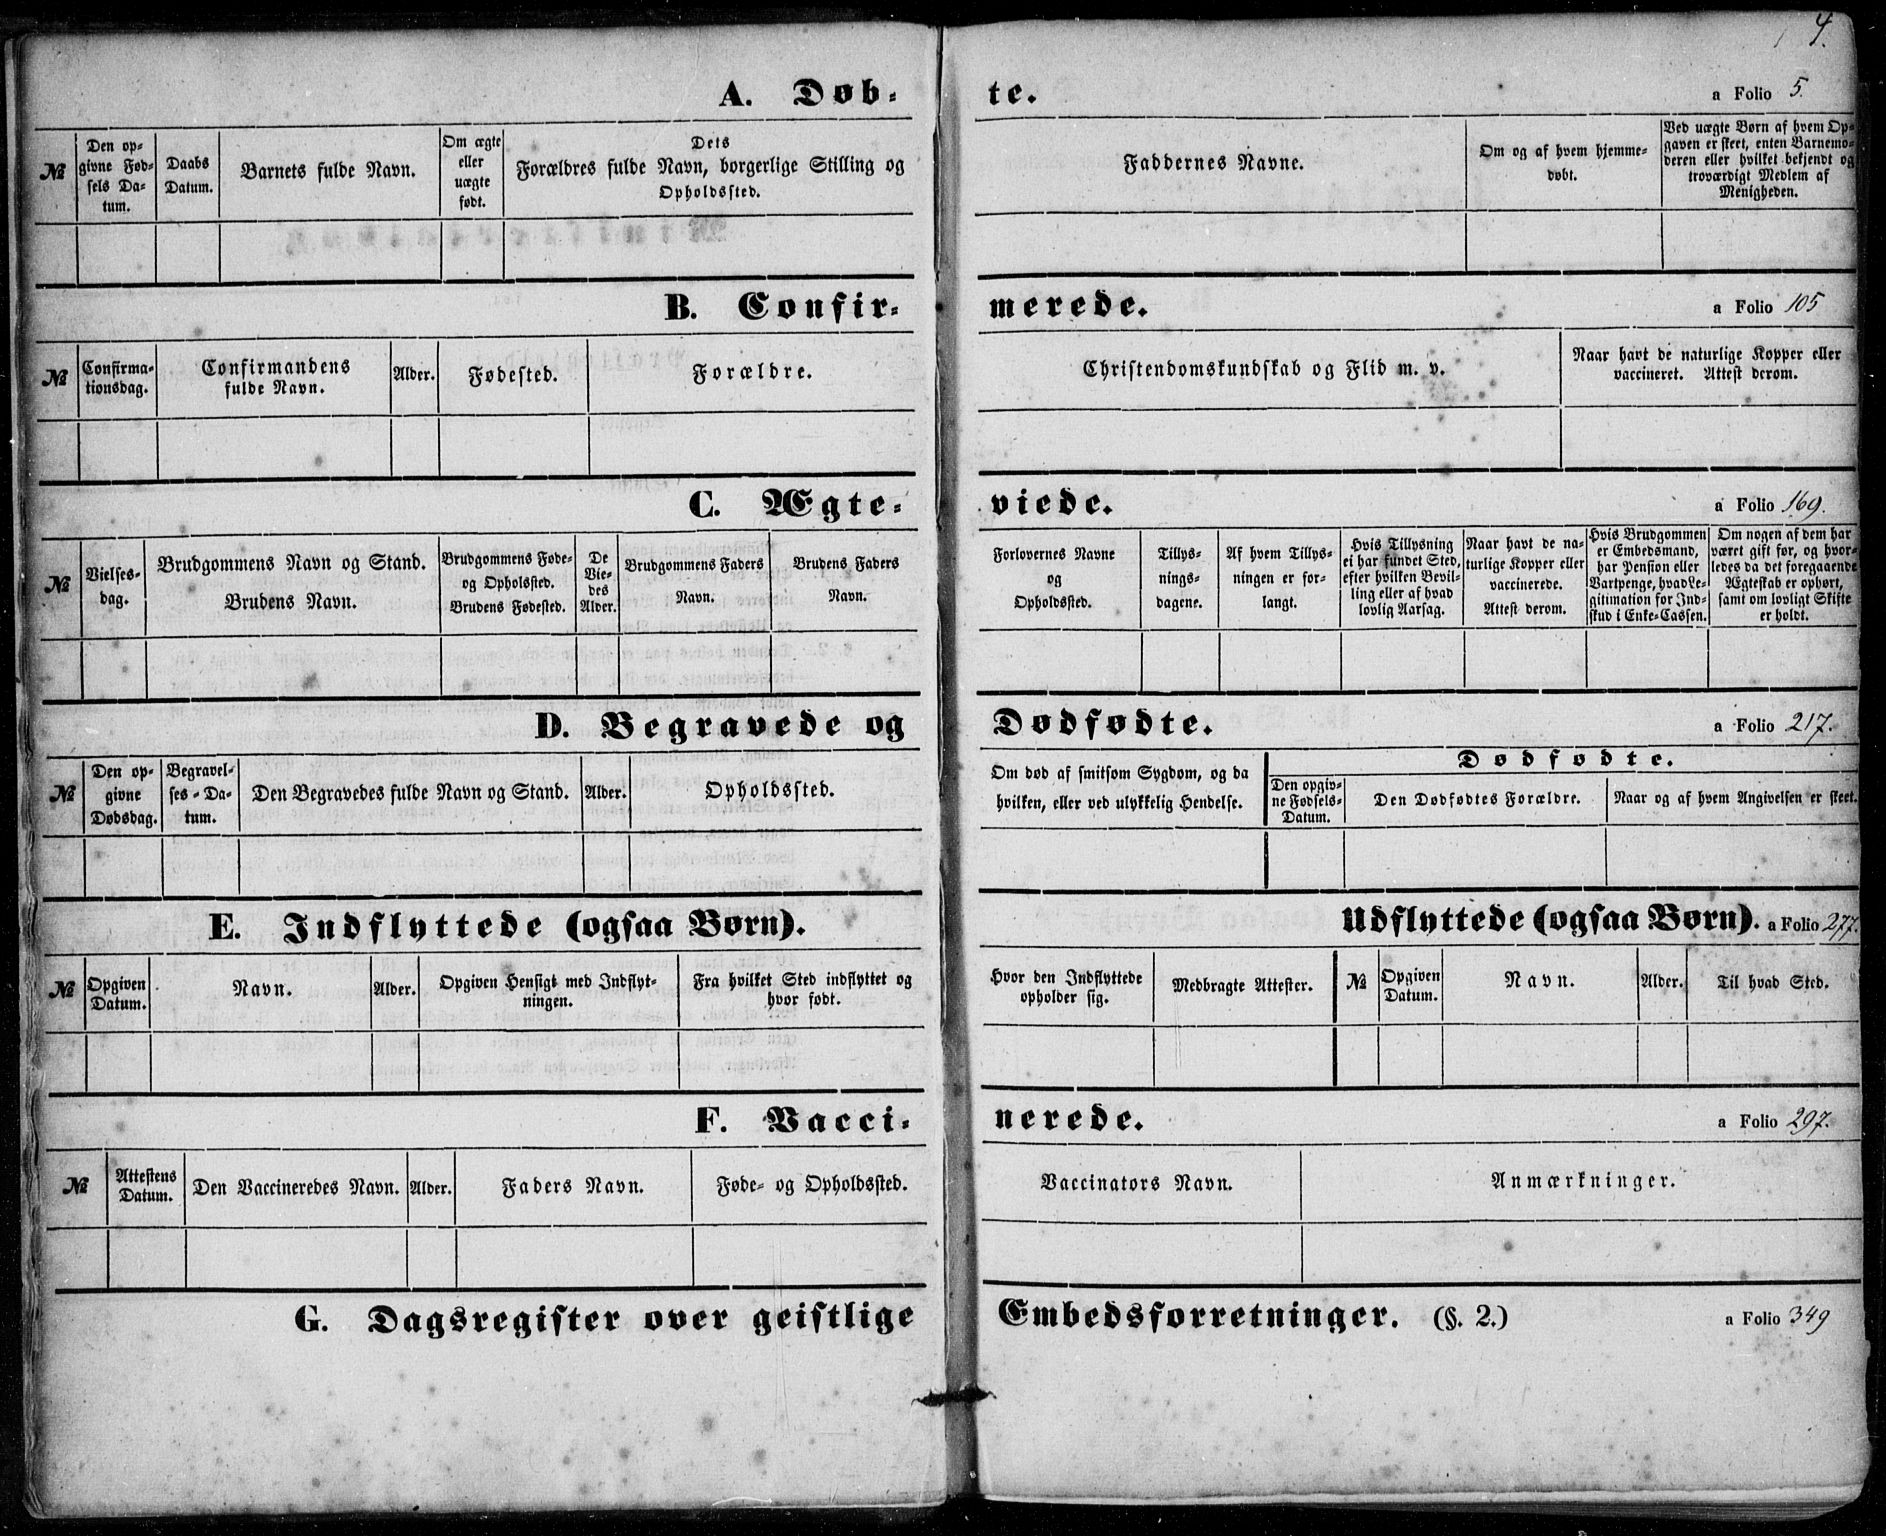 4.
A. Døb-te. a Folio 5.
№
Den op-
givne Fød-
sels Da-
tum.
Daabs
Datum.
Barnets fulde Navn.
Om ægte
eller
uægte
født.
Dets
Forældres fulde Navn, borgerlige Stilling og
Opholdssted.
Faddernes Navne.
Om og af hvem hjemme-
døbt.
Ved uægte Børn af hvem Op-
gaven er skeet, enten Barnemo-
deren eller hvilket bekjendt og
troværdigt Medlem af
Menigheden.
B. Confir-merede. a Folio 105
№
Confirma-
tionsdag.
Confirmandens
fulde Navn.
Alder.
Fødested.
Forældre.
Christendomskundskab og Flid m. v.
Naar havt de naturlige Kopper eller
vaccineret. Attest derom.
C. Ægte-viede. a Folio 169.
№
Vielses-
dag.
Brudgommens Navn og Stand.
Brudens Navn.
Brudgommens Føde-
og Opholdssted.
Brudens Fødested.
De
Vie-
des
Alder.
Brudgommens Faders
Navn.
Brudens Faders
Navn.
Forlovernes Navne
og
Opholdssted.
Tillys-
nings-
dagene.
Af hvem Tillys-
ningen er for-
langt.
Hvis Tillysning
ei har fundet Sted,
efter hvilken Bevil-
ling eller af hvad
lovlig Aarsag.
Naar havt de na-
turlige Kopper eller
vaccinerede.
Attest derom.
Hvis Brudgommen
er Embedsmand,
har Pension eller
Vartpenge, hvad Le-
gitimation for Ind-
skud i Enke-Cassen.
Om nogen af dem har
været gift før, og hvor-
ledes da det foregaaende
Ægteskab er ophørt,
samt om lovligt Skifte
er holdt.
D. Begravede og Dødfødte. a Folio 217.
№
Den op-
givne
Dødsdag.
Begravel-
ses-Da-
tum.
Den Begravedes fulde Navn og Stand.
Alder.
Opholdssted.
Om død af smitsom Sygdom, og da
hvilken, eller ved ulykkelig Hendelse.
Dødfødte.
Den opgiv-
ne Fødsels-
Datum.
Den Dødfødtes Forældre.
Naar og af hvem Angivelsen er skeet.
E. Indflyttede (ogsaa Børn). Udflyttede (ogsaa Børn). a Folio 277.
№
Opgiven
Datum.
Navn.
Alder.
Opgiven Hensigt med Indflyt-
ningen.
Fra hvilket Sted indflyttet og
hvor født.
Hvor den Indflyttede
opholder sig.
Medbragte Attester.
№
Opgiven
Datum.
Navn.
Alder.
Til hvad Sted.
F. Vacci-nerede. a Folio 297.
№
Attestens
Datum.
Den Vaccineredes Navn.
Alder.
Faders Navn.
Føde- og Opholdssted.
Vaccinators Navn.
Anmærkninger.
G. Dagsregister over geistlige Embedsforretninger. (§. 2.) a Folio 349